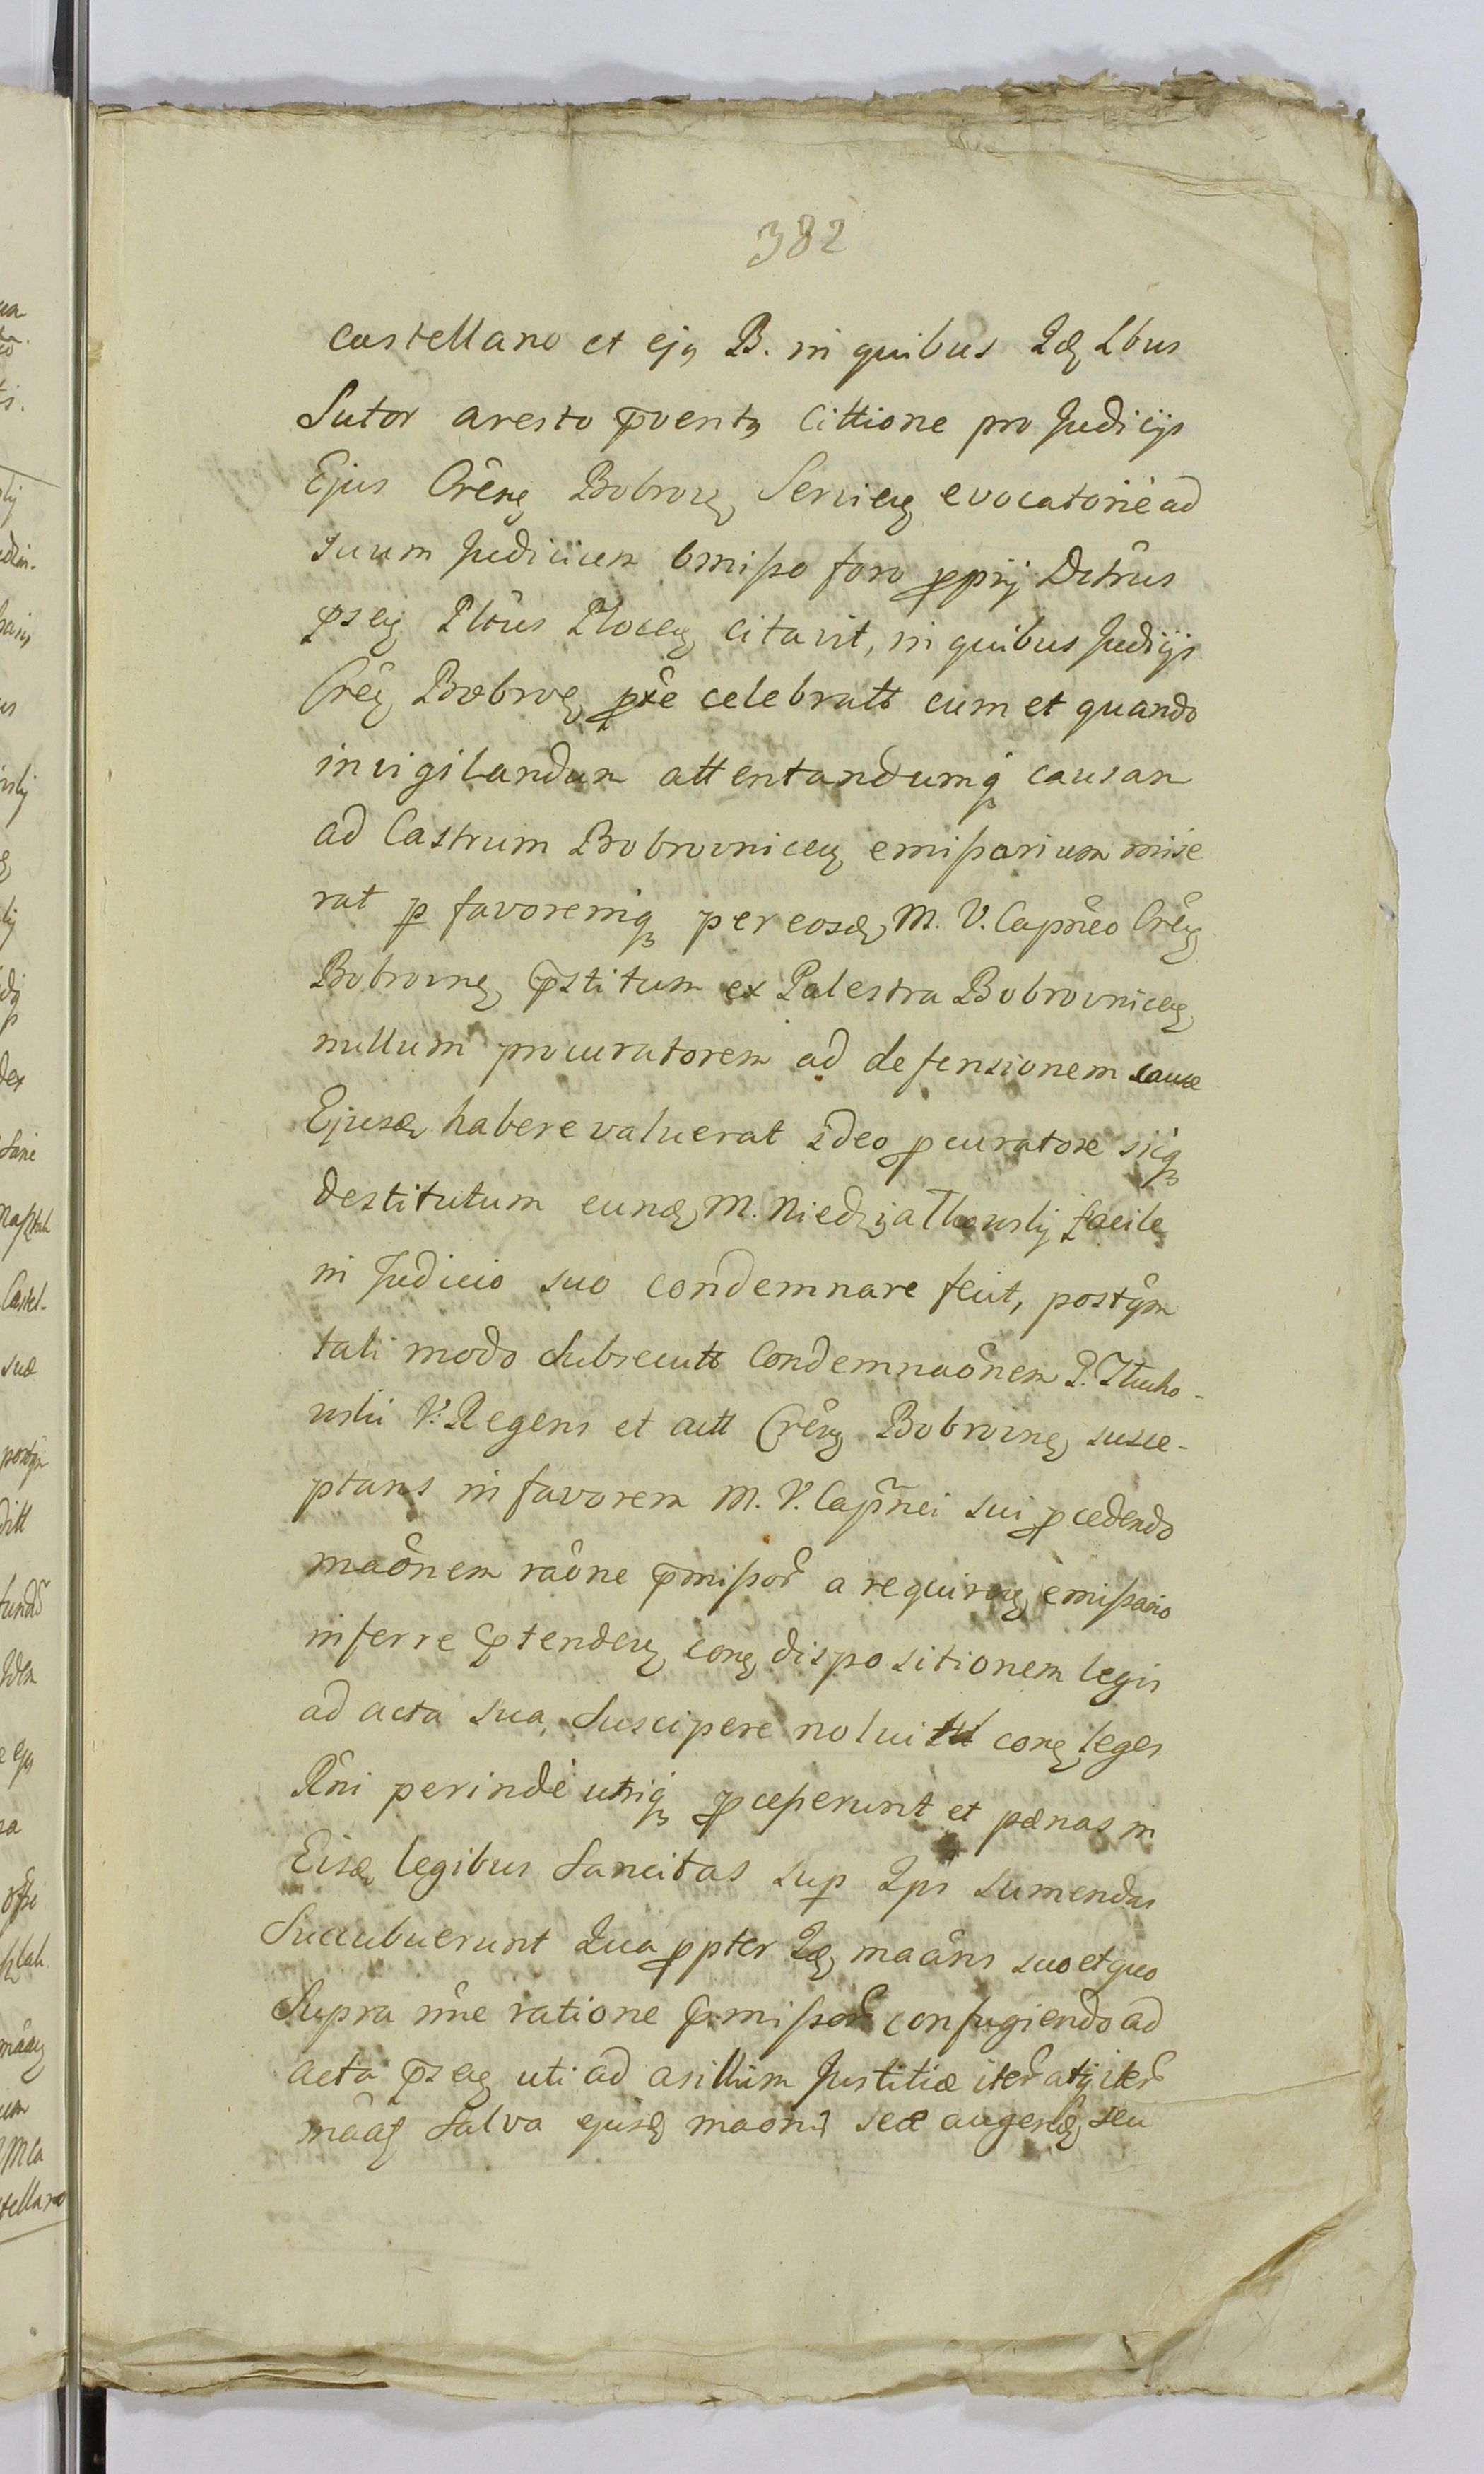 382
castellano et ejq B. in quibus Qdꝫ Lbus
Sutor aresto pventq cittione pro Judicijs
Ejus Crêñę Bobrovę Servieę evocatorie ad
suum Judicium omisso foro pprij Dctrûs
pseę Pltûs Ploceę citavit, in quibus Judicijs
Crêę Bobrovę pte celebratt cum et quando
invigilandum attentandumq causam
ad Castrum Bobrovniceę emissarium mise
rat p favoremq per eosdę M. V. Capnêo Crêę
Bobrovnę pstitum ex Palestra Bobrovniceę
nullum procuratorem ad defensionem causæ
Ejusdę habere valuerat ideo pcuratore sicq
destitutum eundę M. Niedzialkowskij facile
in Judicio suo condemnare fecit, postqm
tali modo Subsecutt Condemnaônem P. Tlucho-
wski V. Regens et actt Crêvę Bobrovnę susce-
ptans in favorem M. V. Capnei sui pcedendo
maônem raône pmissor a requireę emissario
inferre ptendeę conę dispositionem legis
ad acta sua Suscipere noluit conę leges
Rñi perinde utriq pcesserunt et pænas in
Eisdę legibus Sancitas sup Ips sumendas
Succubuerunt Qua ppter Qdę maâns suo et quo
Supra nñe ratione pmissor confugiendo ad
acta pseę uti ad asillum Justitiæ iter atq iter
mâat Salva ejusdę maonis seæ augendę seu